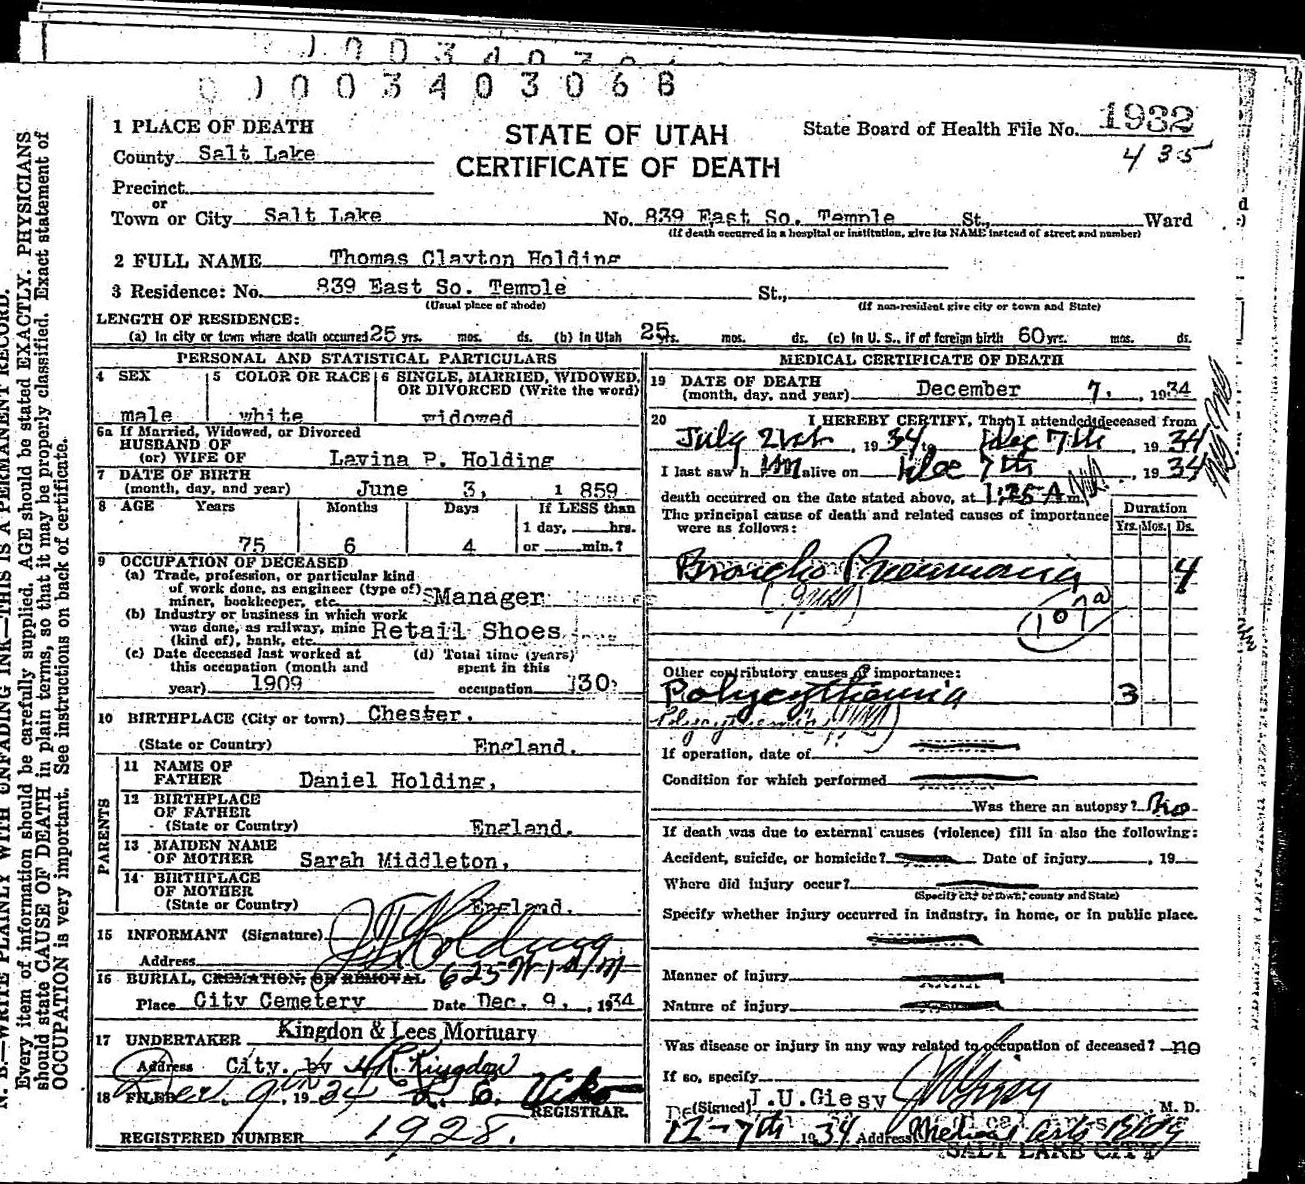 0 0 3 4 0 3
0 0 0 3 4 0 3 0 6 8
1 PLACE OF DEATH
STATE OF UTAH
CERTIFICATE OF DEATH
State Board of Health File No. 1932
435
County Salt Lake
Precinct
or
Town or City Salt Lake No. 839 East So. Temple St., Ward
(If death occurred in a hospital or institution, give its NAME instead of street and number)
2 FULL NAME Thomas Clayton Holding
3 Residence: No. 839 East So. Temple St.,
(Usual place of abode) (If non-resident give city or town and State)
LENGTH OF RESIDENCE:
(a) In city or town where death occurred 25 yrs. mos. ds. (b) In Utah 25 yrs. mos. ds. (c) In U. S., if of foreign birth 60 yrs. mos. ds.
PERSONAL AND STATISTICAL PARTICULARS
4 SEX
male
5 COLOR OR RACE
white
6 SINGLE, MARRIED, WIDOWED, OR DIVORCED (Write the word)
widowed
6a If Married, Widowed, or Divorced
HUSBAND OF
(or) WIFE OF Lavina P. Holding
7 DATE OF BIRTH
(month, day, and year) June 3, 1859
8 AGE Years Months Days If LESS than
1 day, hrs.
75 6 4 or min.?
9 OCCUPATION OF DECEASED
(a) Trade, profession, or particular kind
of work done, as engineer (type of)
miner, bookkeeper, etc. Manager
(b) Industry or business in which work
was done, as railway, mine
(kind of), bank, etc. Retail Shoes
(c) Date deceased last worked at
this occupation (month and
year) 1909
(d) Total time (years)
spent in this
occupation 30
10 BIRTHPLACE (City or town) Chester.
(State or Country) England.
PARENTS
11 NAME OF
FATHER Daniel Holding,
12 BIRTHPLACE
OF FATHER
(State or Country) England.
13 MAIDEN NAME
OF MOTHER Sarah Middleton,
14 BIRTHPLACE
OF MOTHER
(State or Country) England.
15 INFORMANT (Signature) Holding
Address 625
16 BURIAL, CREMATION, OR REMOVAL
Place City Cemetery Date Dec. 9, 1934
17 UNDERTAKER Kingdon & Lees Mortuary
Address City. by Kingdon
18 FILED Dec. 9 1934
REGISTRAR.
REGISTERED NUMBER 1928.
MEDICAL CERTIFICATE OF DEATH
19 DATE OF DEATH
(month, day, and year) December 7, 1934
20 I HEREBY CERTIFY, That I attended deceased from
July 21st, 1934 to Dec 7th, 1934
I last saw h im alive on Dec 7th, 1934
death occurred on the date stated above, at 1:25 A m.
The principal cause of death and related causes of importance
were as follows:
Duration
Yrs. Mos. Ds.
Broncho Pneumonia 4
107a
Other contributory causes of importance:
Polycythemia 3
Polycythemia
If operation, date of
Condition for which performed
Was there an autopsy? No
If death was due to external causes (violence) fill in also the following:
Accident, suicide, or homicide? Date of injury , 19
Where did injury occur?
(Specify city or town, county and State)
Specify whether injury occurred in industry, in home, or in public place.
Manner of injury
Nature of injury
Was disease or injury in any way related to occupation of deceased? no
If so, specify
(Signed) J.U.Giesy M. D.
12-7th 1934 Address Medical Arts Bldg
SALT LAKE CITY
N. B.—WRITE PLAINLY WITH UNFADING INK—THIS IS A PERMANENT RECORD.
Every item of information should be carefully supplied. AGE should be stated EXACTLY. PHYSICIANS
should state CAUSE OF DEATH in plain terms, so that it may be properly classified. Exact statement of
OCCUPATION is very important. See instructions on back of certificate.